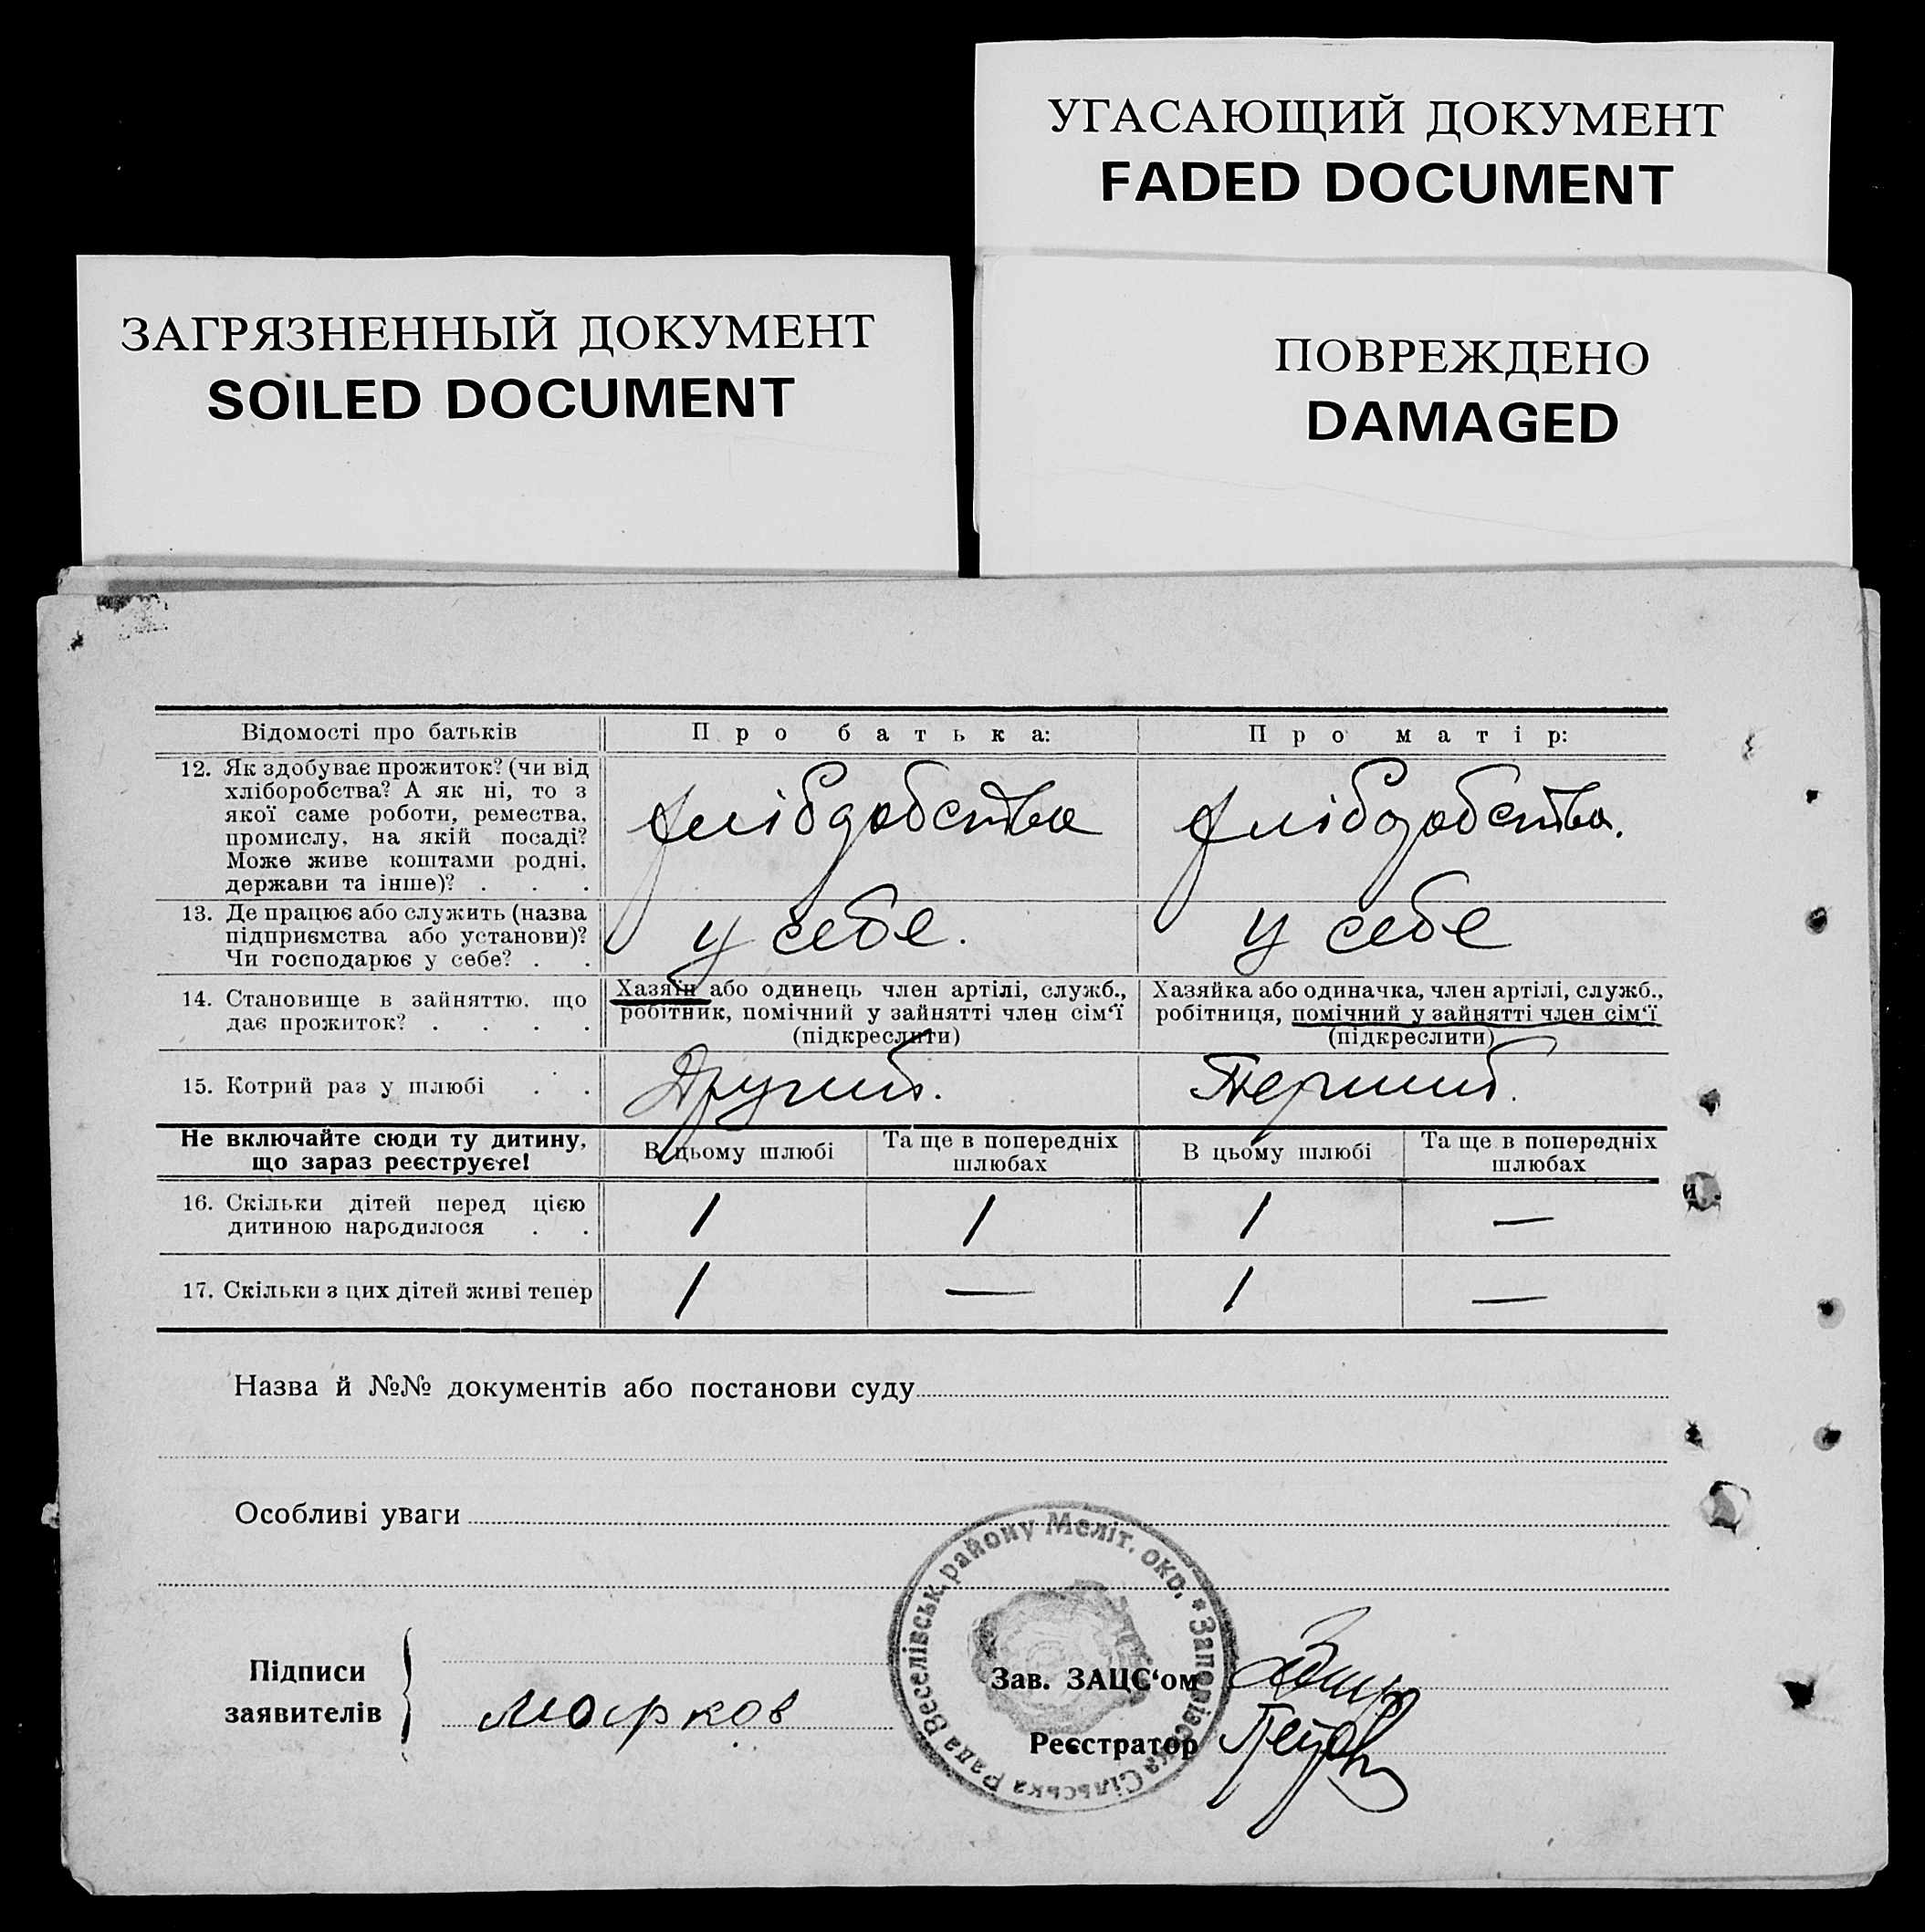 УГАСАЮЩИЙ ДОКУМЕНТ
FADED DOCUMENT
ЗАГРЯЗНЕННЫЙ ДОКУМЕНТ
SOILED DOCUMENT
ПОВРЕЖДЕНО
DAMAGED
Відомості про батьків
Про батька:
Про матір:
12. Як здобуває прожиток? (чи від
хліборобства? А як ні, то з
якої саме роботи, ремества,
промислу, на якій посаді?
Може живе коштами родні,
держави та інше)? . . .
хліборобства
хліборобства.
13. Де працює або служить (назва
підприємства або установи)?
Чи господарює у себе? . .
у себе.
у себе
14. Становище в зайняттю, що
дає прожиток? . . . .
Хазяїн або одинець член артілі, служб.,
робітник, помічний у зайнятті член сім'ї
(підкреслити)
Хазяйка або одиначка, член артілі, служб.,
робітниця, помічний у зайнятті член сім'ї
(підкреслити)
15. Котрий раз у шлюбі . .
Другий.
Перший.
Не включайте сюди ту дитину,
що зараз реєструєте!
В цьому шлюбі
Та ще в попередніх
шлюбах
В цьому шлюбі
Та ще в попередніх
шлюбах
16. Скільки дітей перед цією
дитиною народилося . .
1
1
1
—
17. Скільки з цих дітей живі тепер
1
—
1
—
Назва й №№ документів або постанови суду
Особливі уваги
Підписи
заявителів
Марков
Зав. ЗАЦС'ом
Реєстратор
Сільська Рада Веселівськ. району Меліт. окр. *